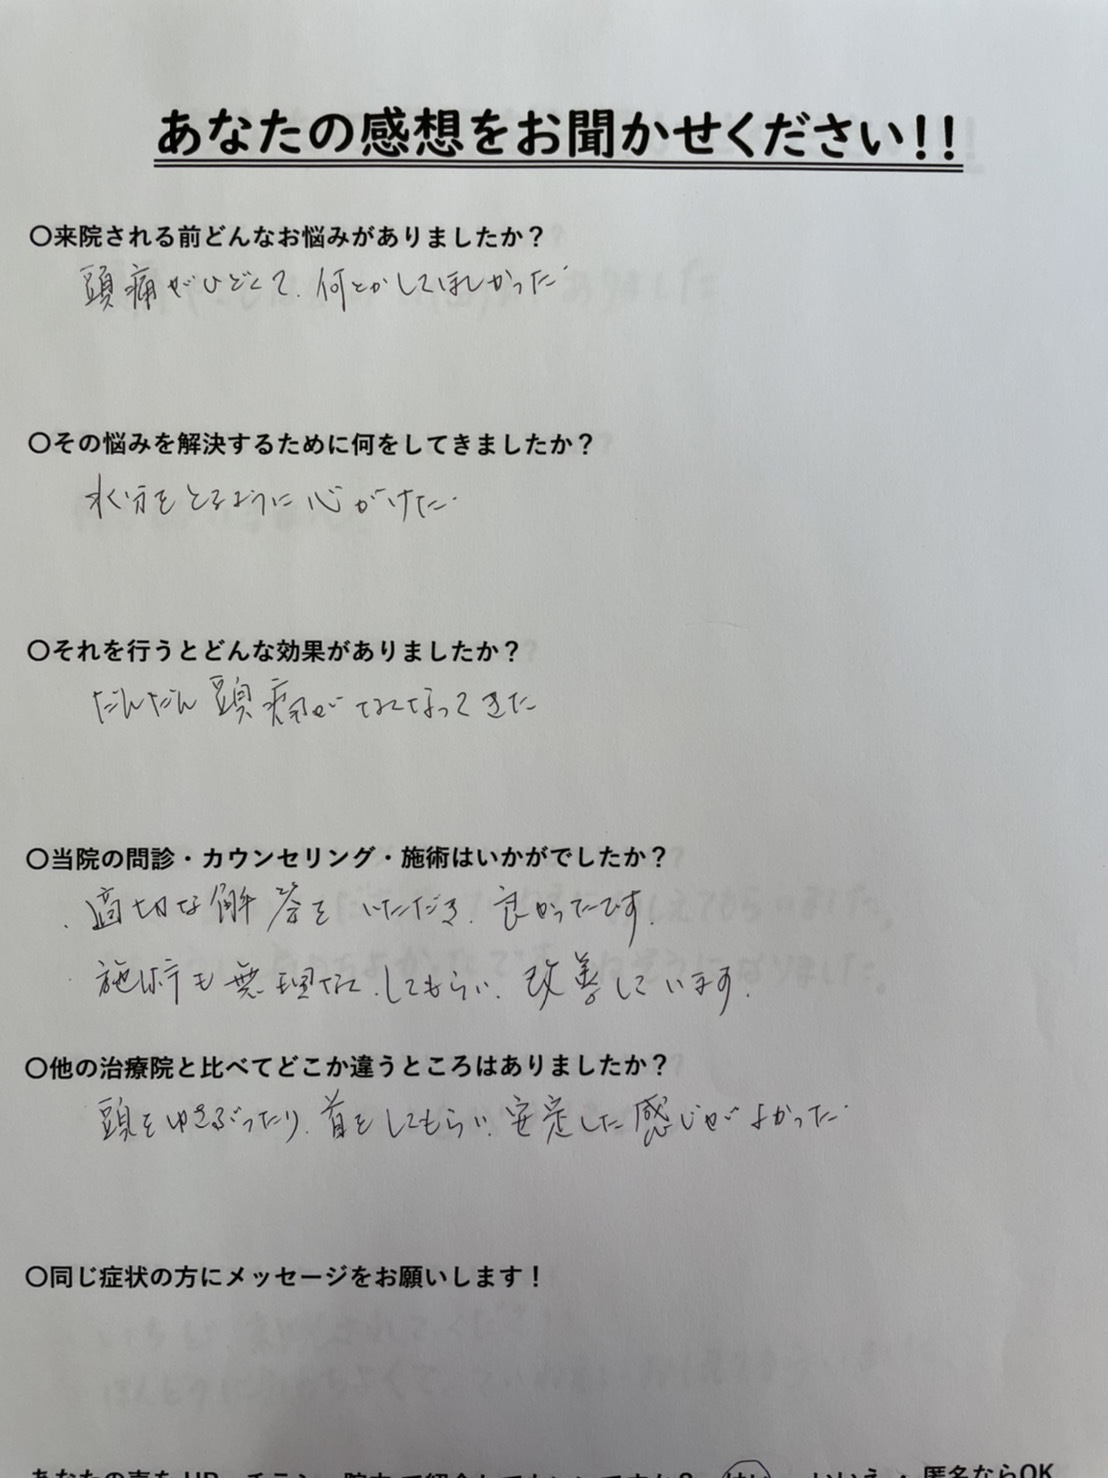 あなたの感想をお聞かせください！！
〇来院される前どんなお悩みがありましたか？
頭痛がひどくて、何とかしてほしかった。
〇その悩みを解決するために何をしてきましたか？
水分をとるように心がけた。
〇それを行うとどんな効果がありましたか？
だんだん頭痛がなくなってきた
〇当院の問診・カウンセリング・施術はいかがでしたか？
・適切な解答をいただき、良かったです。
・施術も無理なく、してもらい、改善しています。
〇他の治療院と比べてどこか違うところはありましたか？
頭をゆさぶったり、首をしてもらい、安定した感じがよかった。
〇同じ症状の方にメッセージをお願いします！
匿名ならOK